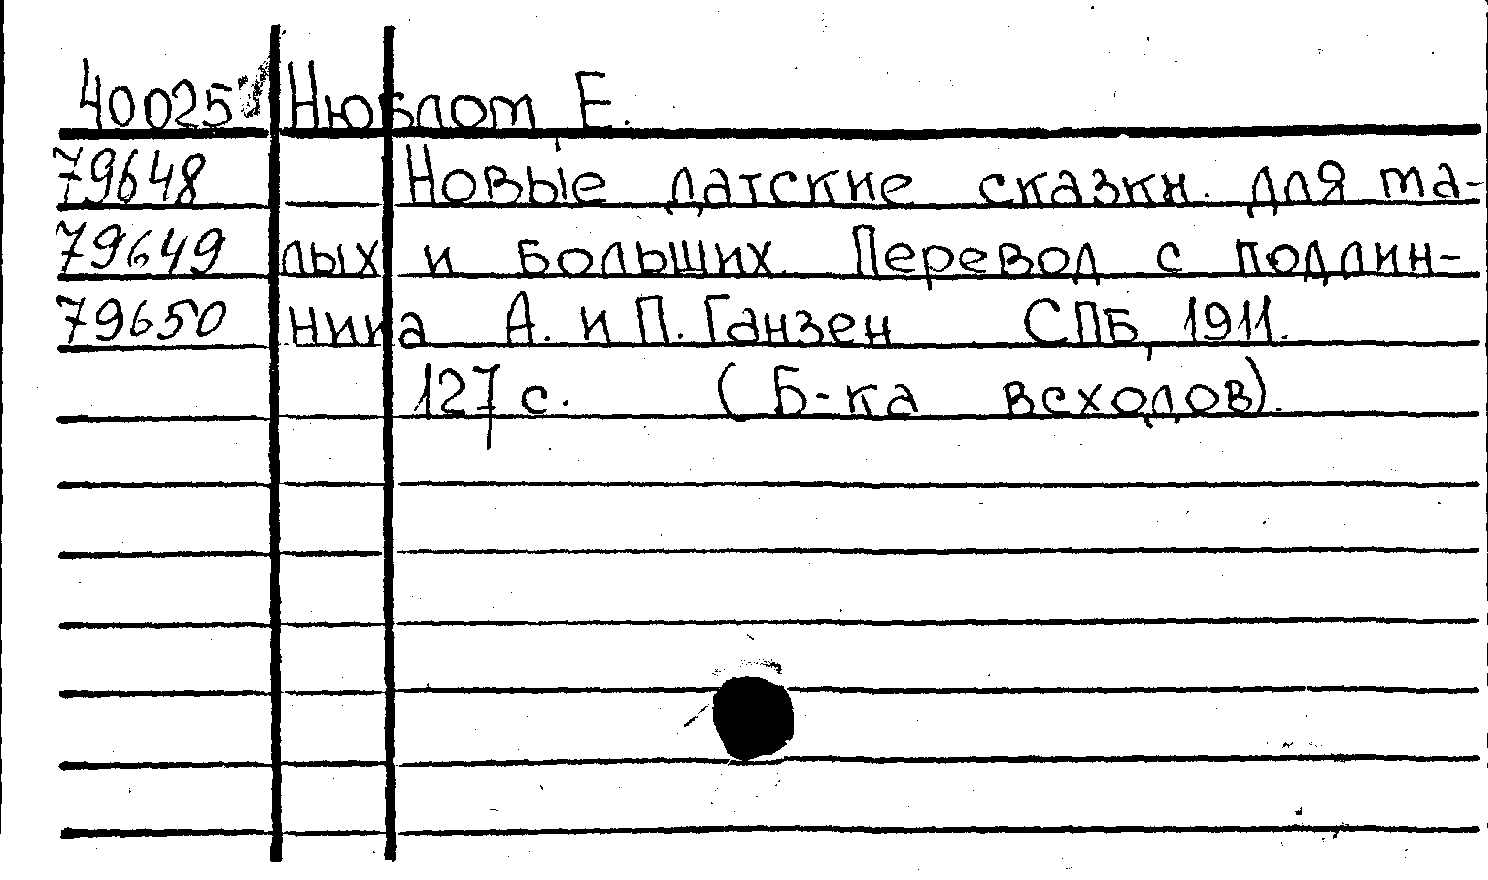 40025 Нюблом Е.
79648 Новые датские сказки. Для ма-
79649 лых и больших. Перевод с подлин-
79650 ника А. и П. Ганзен СПБ, 1911.
127 с. (Б-ка всходов).